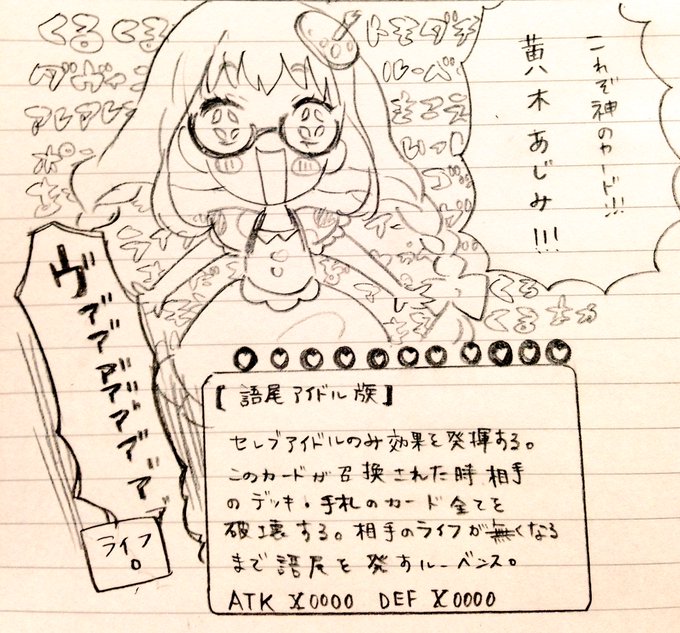 これぞ神のカード!!!
黄木あじみ!!!
くるくる
トモダチ
ルーベ
アレアレ
くる
くる
ヴァアアアアアア
ライフ
0
[語尾アイドル族]
セレブアイドルのみ効果を発揮する。
このカードが召換された時相手
のデッキ・手札のカード全てを
破壊する。相手のライフが無くなる
まで語尾を発すルーベンス。
ATK X0000 DEF X0000